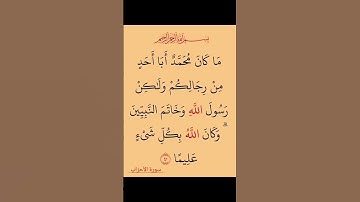 بسم الله الرحمن الرحيم
مَا كَانَ مُحَمَّدٌ أَبَا أَحَدٍ
مِنْ رِجَالِكُمْ وَلَٰكِنْ
رَسُولَ اللَّهِ وَخَاتَمَ النَّبِيِّينَ ۗ
وَكَانَ اللَّهُ بِكُلِّ شَيْءٍ
عَلِيمًا ٤٠
سورة الأحزاب